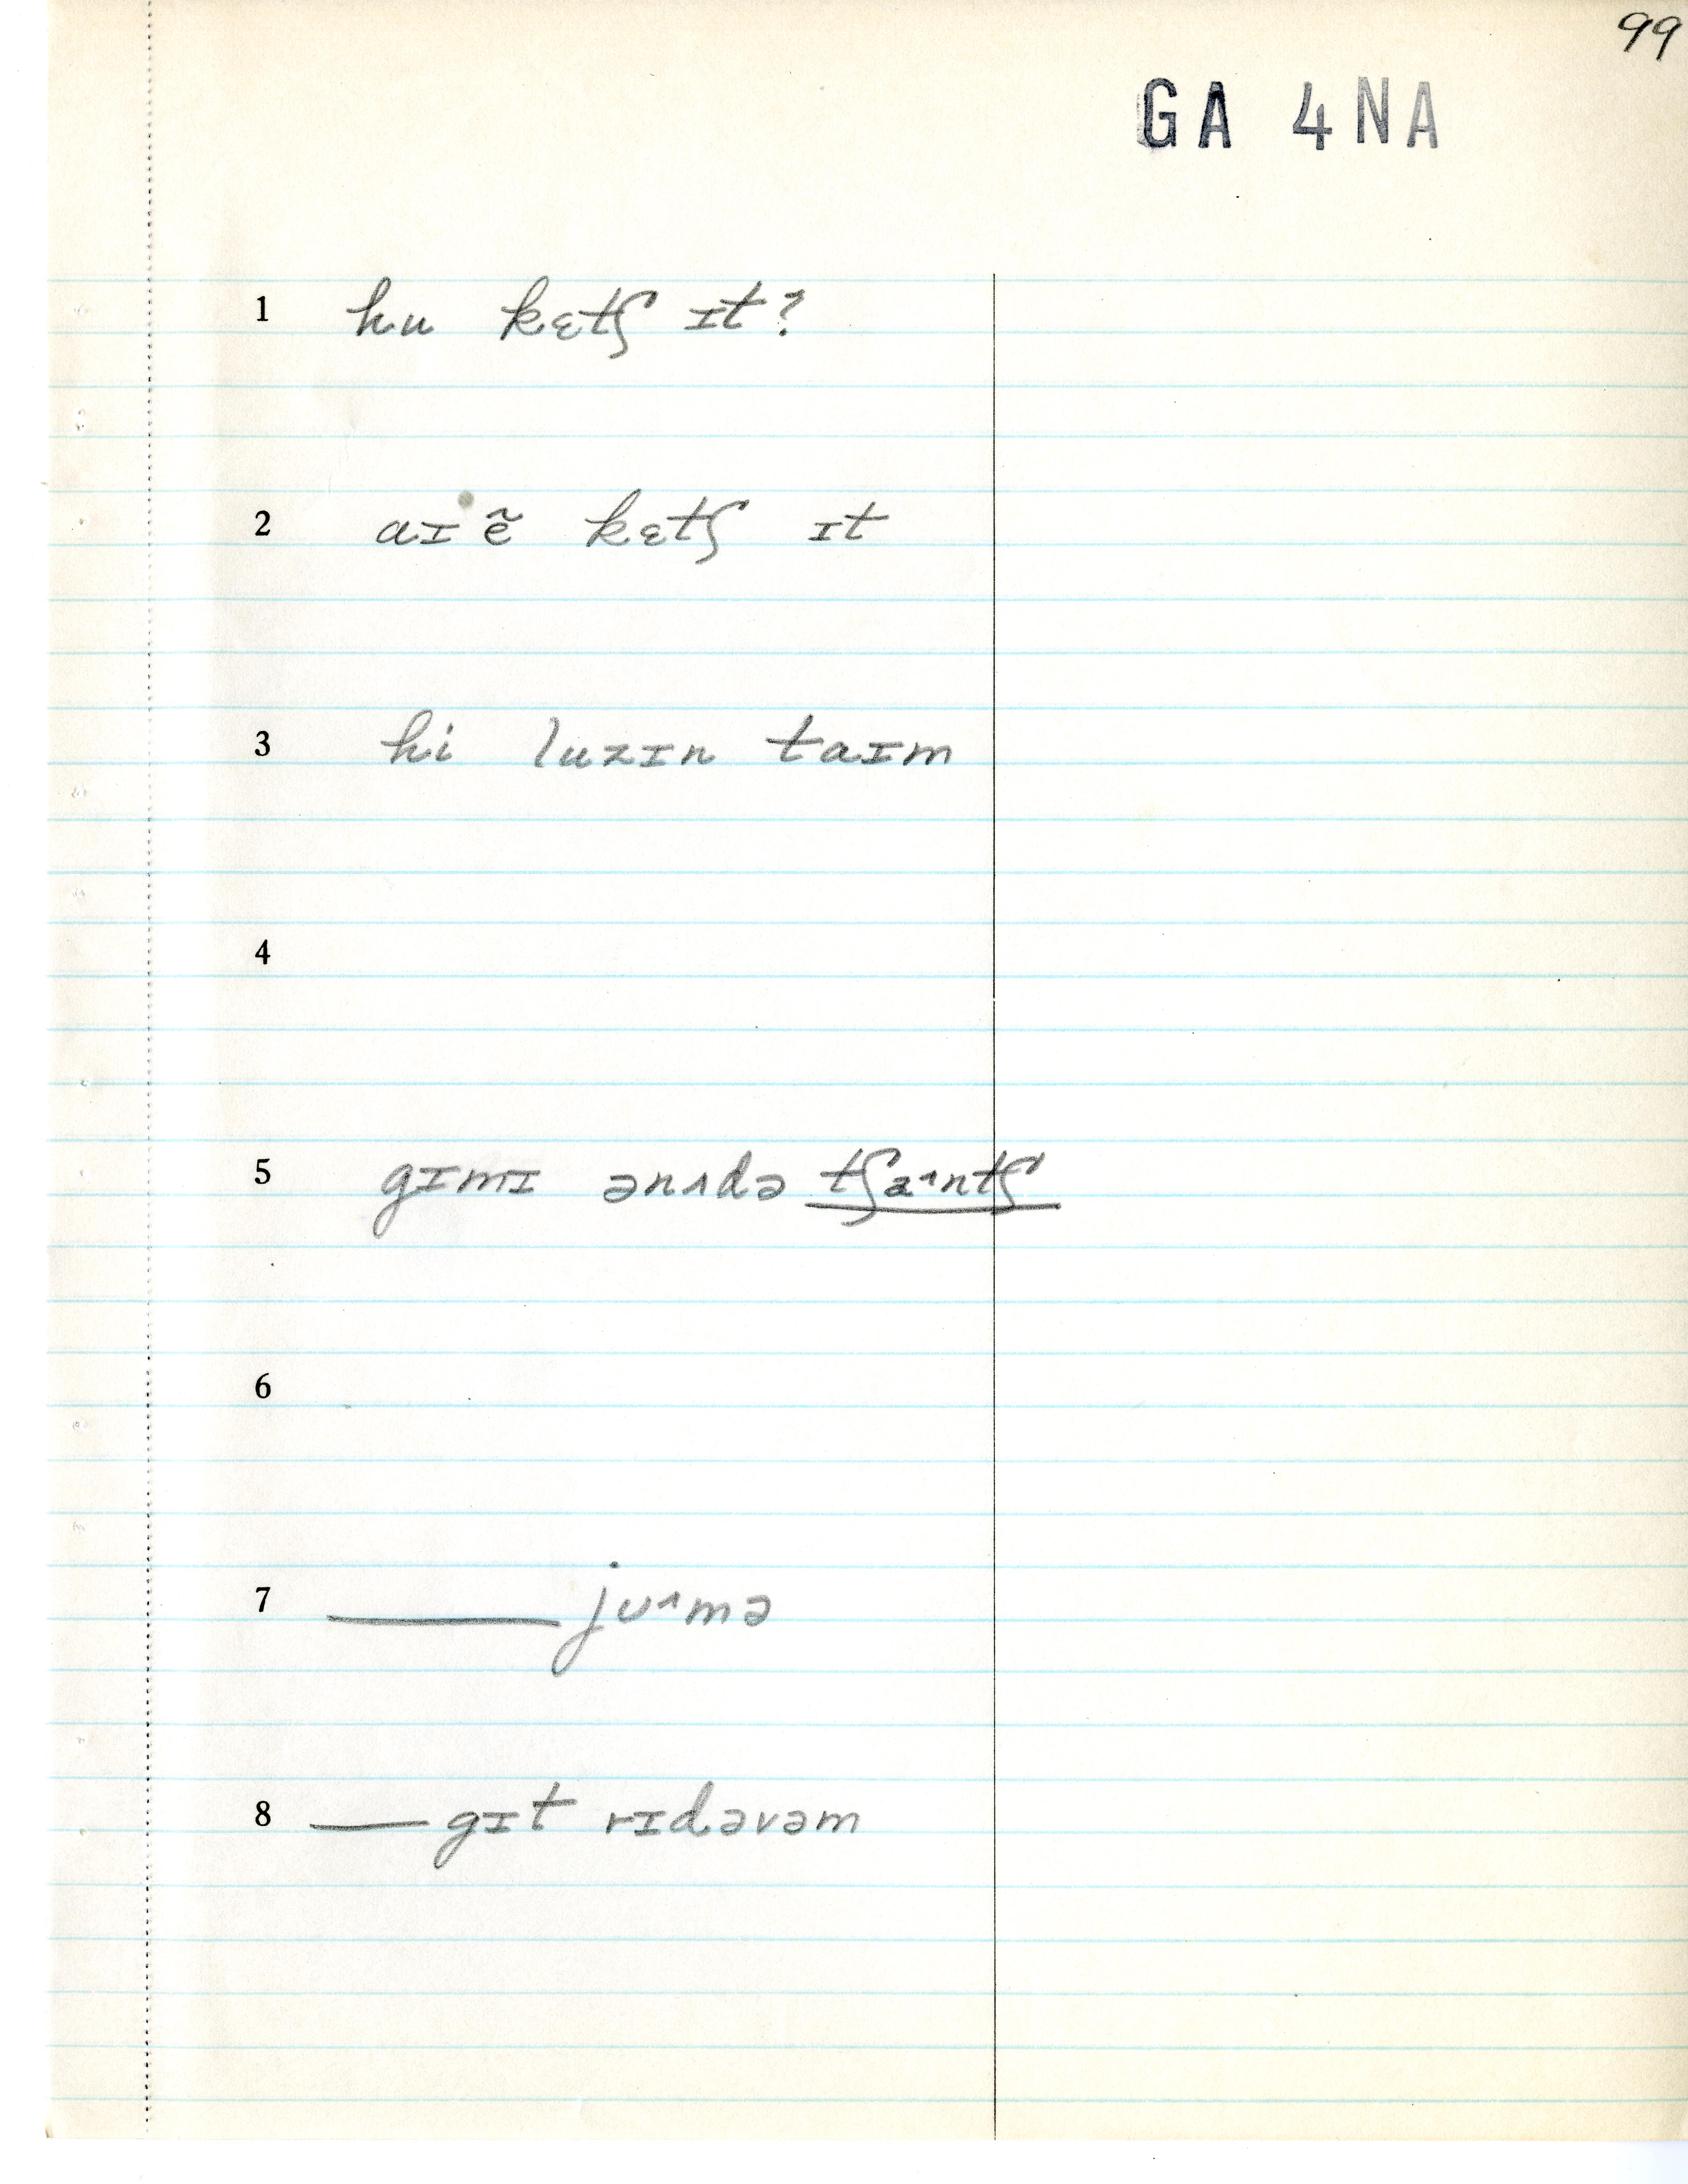 99
GA 4NA
1 hu kɛtʃ ɪt?
2 aɪ ẽ kɛtʃ ɪt
3 hi luzɪn taɪm
4
5 gɪmɪ ənʌdə tʃa˄ntʃ
6
7 ______ jʊ˄mə
8 ___ gɪt rɪdəvəm